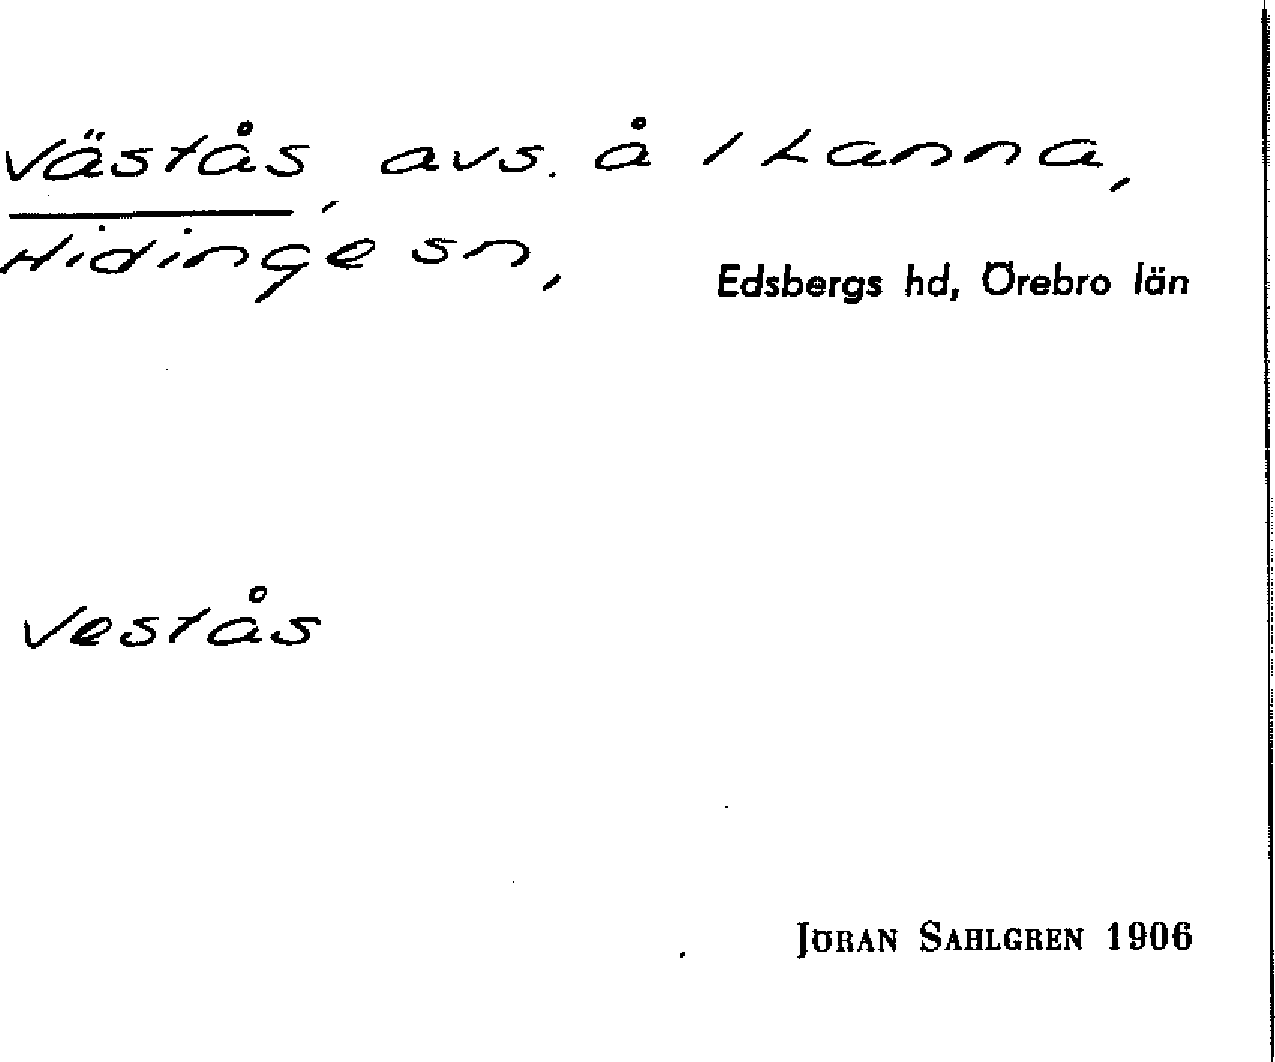 Västås, avs. å 1 Lanna,
Hidinge sn, Edsbergs hd, Örebro län
Vestås
JÖRAN SAHLGREN 1906